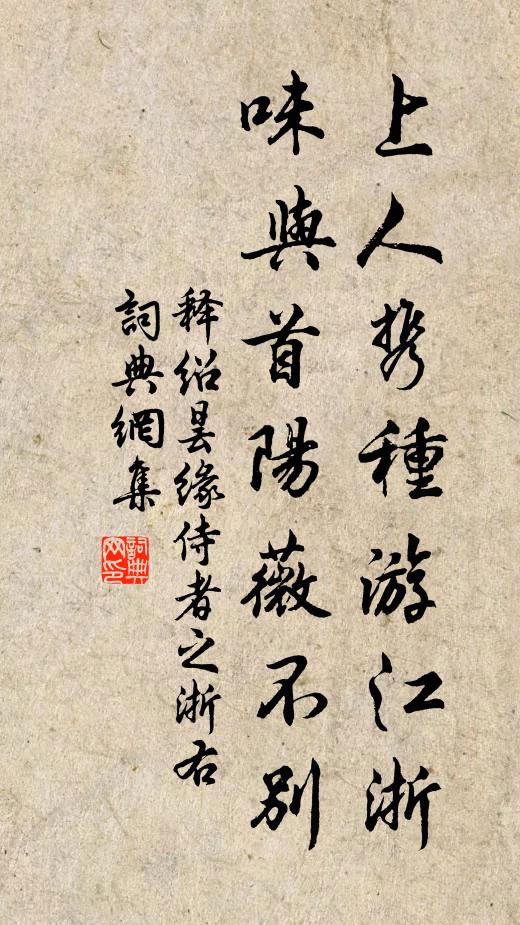 上人携種游江浙
味與首陽薇不別
释绍昙缘侍者之浙右
詞典網集
詞典网印